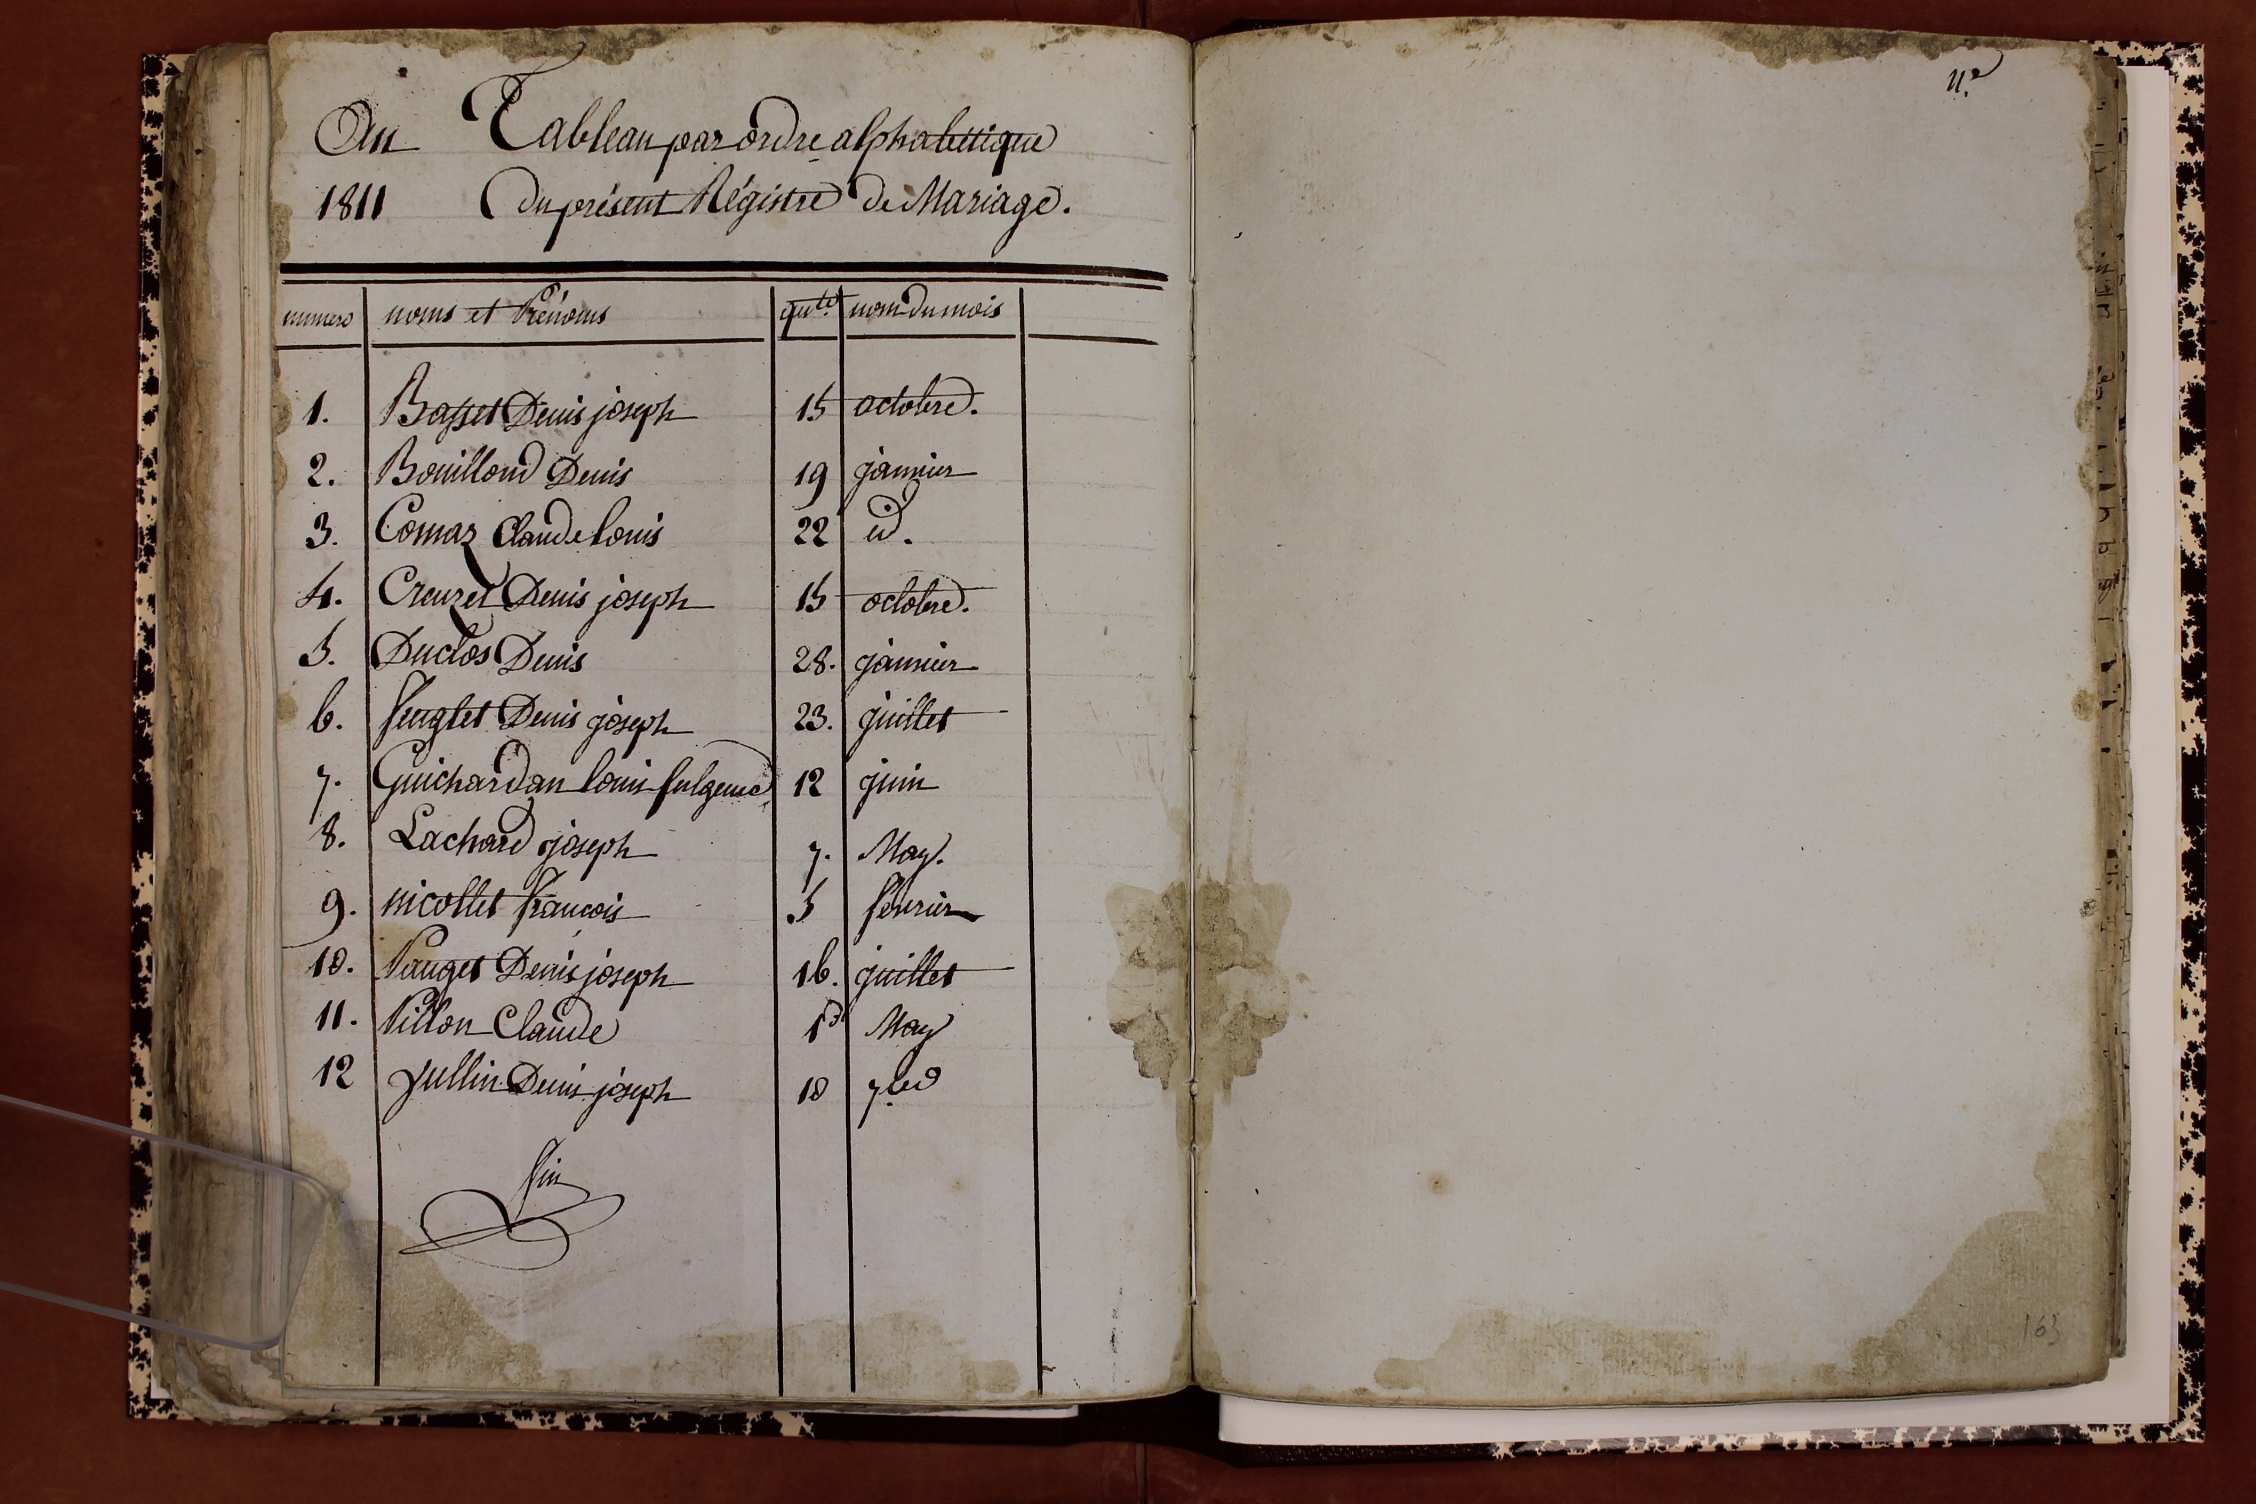 An Tableau par ordre alphabettique
1811 du présent Régistre de Mariage.
numero noms et Prénoms qu.te nom du mois
1. Basset Denis joseph 15 octobre.
2. Bouillond Denis 19 janvier
3. Comaz Claude Louis 22 id.
4. Creuzet Denis joseph 15 octobre.
5. Duclos Denis 28. janvier
6. Feuglet Denis joseph 23. juillet
7. Guichardan Louis fulgence 12 juin
8. Lachard joseph 7. May.
9. nicollet françois 5 février
10. Pauget Denis joseph 16. juillet
11. Pillon Claude May
12 Jullin Denis joseph 10 7.bre
fin
163